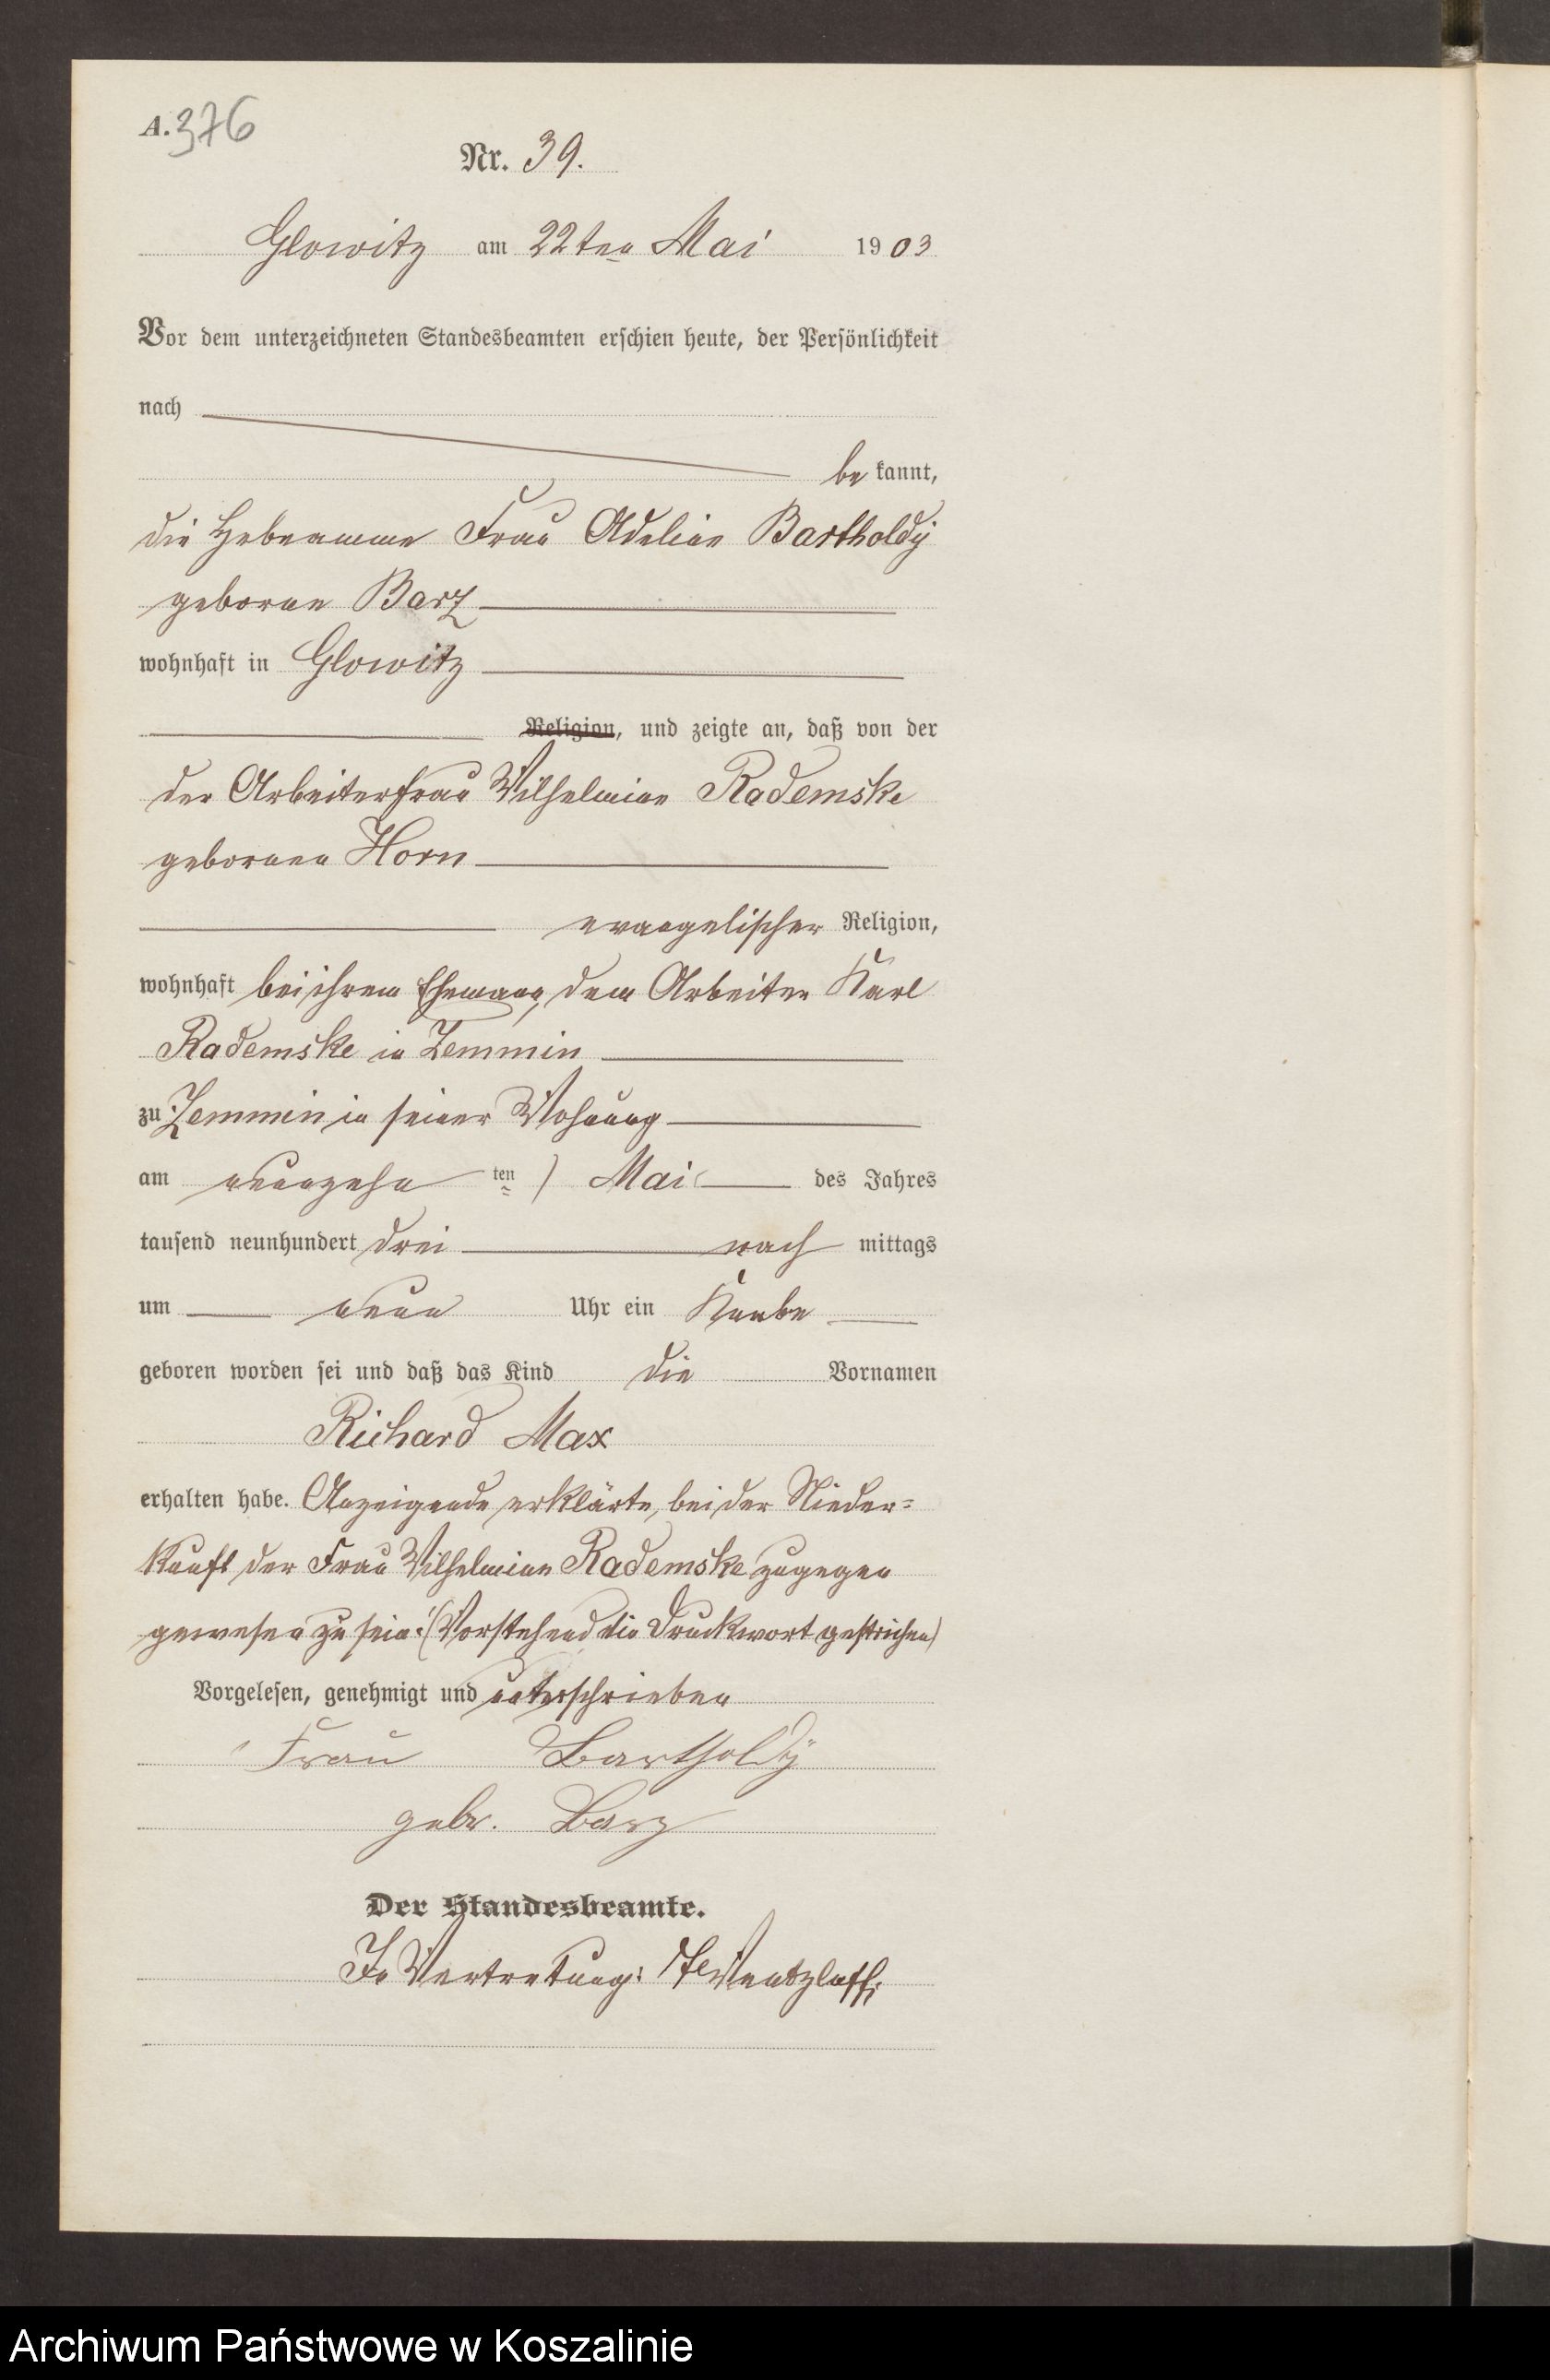 A. 376
Nr. 39.
Glowitz am 22ten Mai 1903
Vor dem unterzeichneten Standesbeamten erschien heute, der Persönlichkeit
nach
be kannt,
die Hebeamme Frau Adeline Bartholdÿ
geborne Barz
wohnhaft in Glowitz
Religion, und zeigte an, daß von der
der Arbeiterfrau Wilhelmine Rademske
gebornen Horn
evangelischer Religion,
wohnhaft bei ihrem Ehemann, dem Arbeiter Karl
Rademske in Zemmin
zu Zemmin in seiner Wohnung
am neunzehn ten Mai des Jahres
tausend neunhundert drei nach mittags
um neun Uhr ein Knabe
geboren worden sei und daß das Kind die Vornamen
Richard Max
erhalten habe. Anzeigende erklärte, bei der Nieder=
kunft der Frau Wilhelmine Rademske zugegen
gewesen zu sein. (Vorstehend ein Druckwort gestrichen)
Vorgelesen, genehmigt und unterschrieben
Frau Bartholdÿ
gebr. Barz
Der Standesbeamte.
In Vertretung:
Archiwum Państwowe w Koszalinie